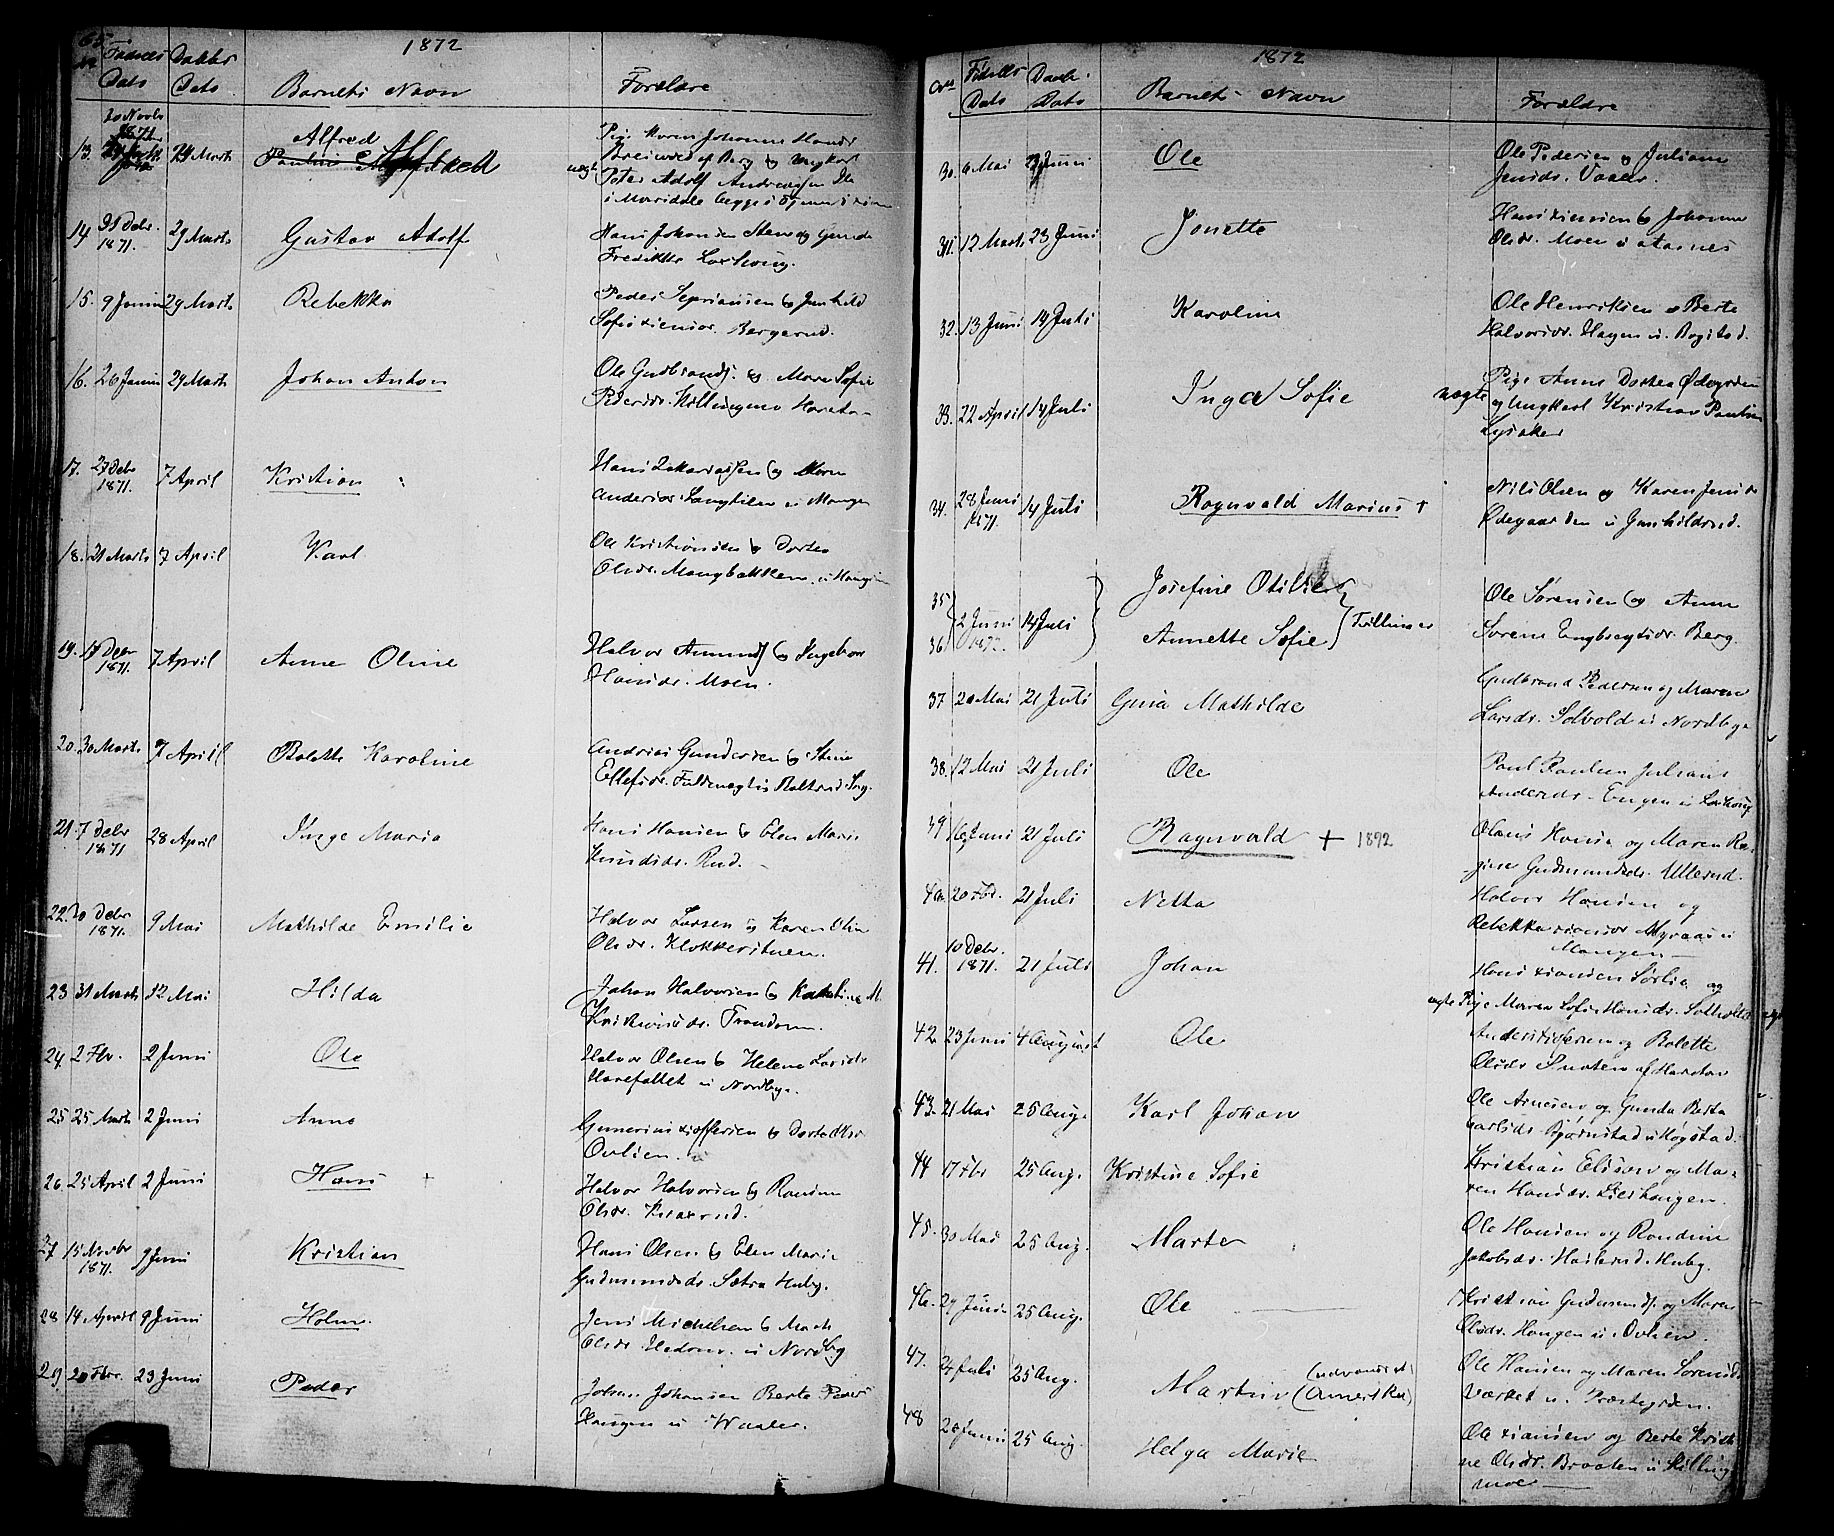 65
1872
No Fødsels Dato
Daabs Dato
Barnets Navn
Forældre
20 Novbr 1871
13. 24 Marts Alfred
Pige Karen Johanne Hansdr
uægte Peter Adolf Andreassen
14. 31 Debr. 1871. 29 Marts Gustav Adolf
Hans Johansen Stener og Gunda
Fredrikke Laxhoug.
15. 9 Januar 29 Marts Rebekka
Peder og Gunhild
Sofie Bergerud.
16. 26 Januar 29 Marts Johan Anton
Ole Gudbrands. og Maren Sofie
Pedersdr. Killingmo Hareton
17. 27 Debr 1871. 7 April Kristian
Hans Zakariassen og Maren
Andersdr. Langtilen u Mangen
18. 21 Marts 7 April Karl
Ole Kristiansen og Dortea
Olsdr. Mangbakken u Mangen
19. 17 Debr 1871. 7 April Anne Oline
Halvor Amunds og Ingebor
Hansdr. Moen.
20. 30 Marts 7 April Bolette Karoline
Andreas Gundersen og Stine
Ellefsdr.
21. 7 Debr 1871 28 April Inge Maria
Hans Hansen og Elen Marie
Knudsdr. Rud.
22. 30 Debr 1871. 9 Mai Mathilde Emilie
Halvor Larsen og Karen Oline
Olsdr. Klokkerstuen.
23 31 Marts 12 Mai Hilda
Johan Halvorsen og Kathrine M.
24. 2 Fbr. 2 Juni Ole
Halvor Olsen og Helene Larsdr
Harefallet u Nordbye.
25 25 Marts 2 Juni Anne
Ovlien.
26. 25 April 2 Juni Hans +
Halvor Halvorsen og Randine
Olsdr. Knaxrud.
27 15 Novbr 1871. 9 Juni Kristian
Hans Olsen og Elen Marie
Gudmundsdr. Sætra Huby.
28 14 April 9 Juni Holm.
Jens Michelsen og Marte
Olsdr. u Nordby
29. 20 Fbr. 23 Juni Peder
Johan Johansen Berte Peders
Haugen u Waaler.
1872
No Fødsels Dato
Daabs Dato
Barnets Navn
Forældre
30. 6 Mai 23 Juni Ole
Ole Pedersen og Juliane
Jensdr. Vaaler.
31. 12 Marts 23 Juni Jonette
Hans og Johanne
Olsdr. Moen u Aasnes
32. 13 Juni 14 Juli Karoline
Ole Henriksen og Berte
Halvorsdr. Hagen u. Bogstad.
33. 22 April 14 Juli Inga Sofie
uægte Pige Anne Dortea Ødegarden
og Ungkarl Kristian Paulsen
Lysaker
34. 28 Juni 1871. 14 Juli Ragnvald Marius +
Nils Olsen og Karen Jensdr
Ødegaarden u Gunhildrud.
35 36 2 Juni 1872. 14 Juli Josefine Otilie Annette Sofie Tvillinger
Ole Sørensen og Anne
Sorene Engbregtsdr. Berg.
37 20 Mai 21 Juli Gina Mathilde
Gudbrand Pedersen og Maren
Larsdr. Solvold u Nordbye
38. 12 Mai 21 Juli Ole
Paul Paulsen Juliane
Andersdr. Engen u Laxhoug
39 16 Juni 21 Juli Ragnvald + 1892
Olaus Hansen og Maren Ra-
gine Gudmundsdr. Ullerud.
40. 20 Fbr. 21 Juli Netta
Halvor Hansen og
Rebekka Myraas u
Mangen
41. 10 Debr. 1871. 21 Juli Johan
Hans Xiansen Sørlie og
uægte Pige Maren Sofie Hansdr.
42. 23 Juni 4 August Ole
Anders og Bolette
Olsdr af Hareton
43. 21 Mai 25 Aug. Karl Johan
Ole Arnesen og Gunda Berta
Karlsdr. Bjørnstad u Høgstad.
44 17 Fbr 25 Aug. Kristine Sofie
Kristian Eliasen og Ma-
ren Hansdr. Lilshaugen.
45. 30 Mai 25 Aug. Marte
Ole Hansen og Randine
Jakobsdr. Haslerud. Huby.
46. 29 Juni 25 Aug. Ole
Kristian og Maren
Olsdr. Haugen u. Ovlien.
47. 24 Juli 25 Aug. Martin (udvandret Amerika)
Ole Hansen og Maren Sørensdr
Værket u. Præstegrden.
48 20 Juni 25 Aug. Helga Marie
Ole Xiansen og Berte Kristi-
ne Olsdr. Braaten u Killing-
moe